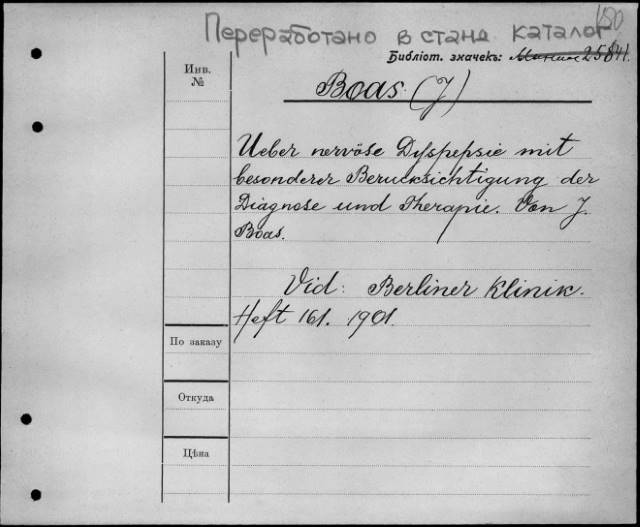 Переработано в станд. каталог
150
Библіот. значекъ: 25841.
Инв.
№
Boas (J)
Ueber nervöse Dyspepsie mit
besonderer Berucksichtigung der
Diagnose und Therapie. Von J.
Boas.
Vid: Berliner Klinik.
Heft 161. 1901.
По заказу
Откуда
Цѣна